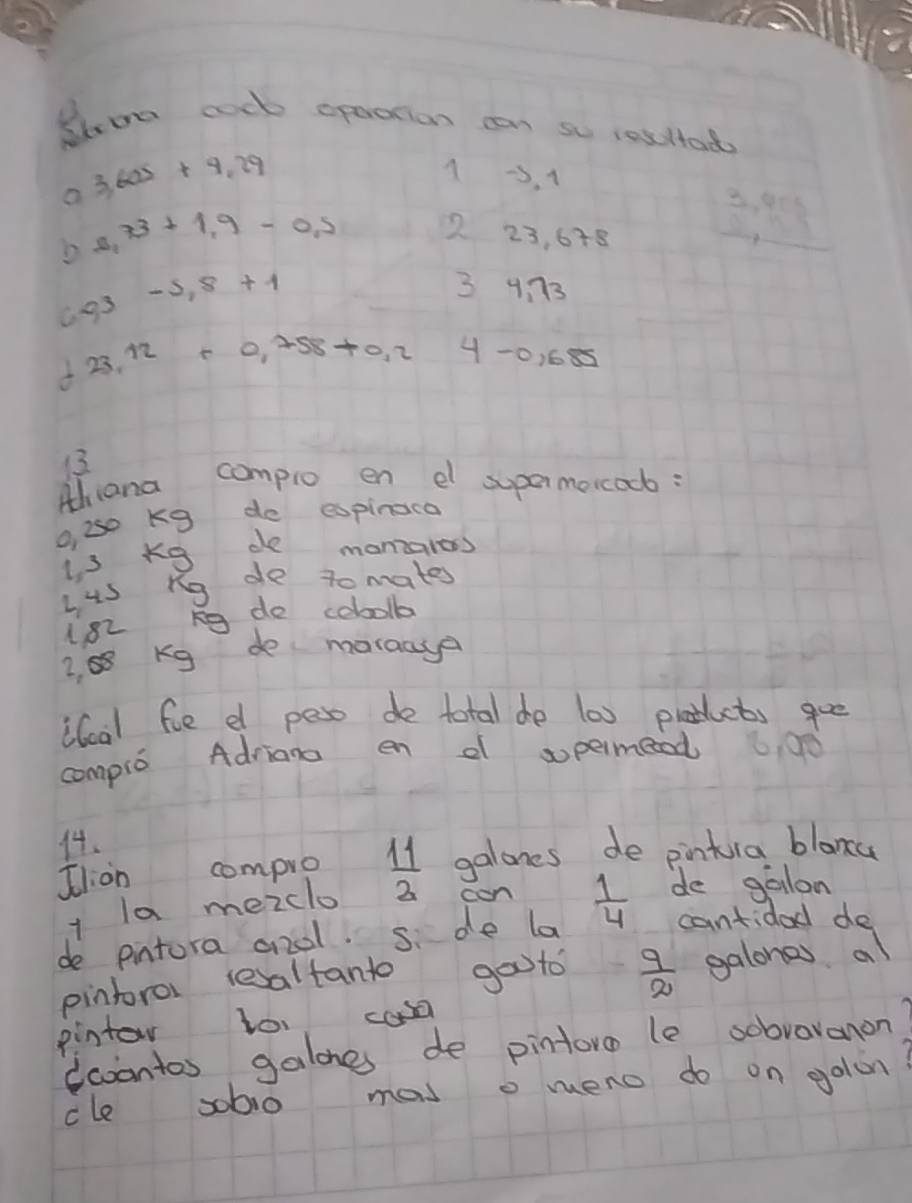 cada operacion con su resultado
a 3,605 + 4,29 1 -5,1
b 8,33 + 1,9 - 0,5 2 23,678
c 0,3 -5,8 + 1 3 9,73
d 23,12 + 0,358 + 0,2 4 -0,685
13
Adriana compro en el supermercado:
0,250 Kg de espinaca
1,3 Kg de manzanas
2,45 Kg de tomates
1,82 Kg de cebolla
2,08 Kg de maracuya
¿Cual fue el peso de total de los productos que
compró Adriana en el supermercad
14.
Julion compro 11/2 galones de pintura blanca
y la mezclo con 1/4 de galon
de pintora azul. si de la cantidad de
pintora resaltante gastó 9/2 galones. al
pintar la casa
¿cuantos galones de pintora le sobraranon?
¿le sobro mas o meno do un galon?